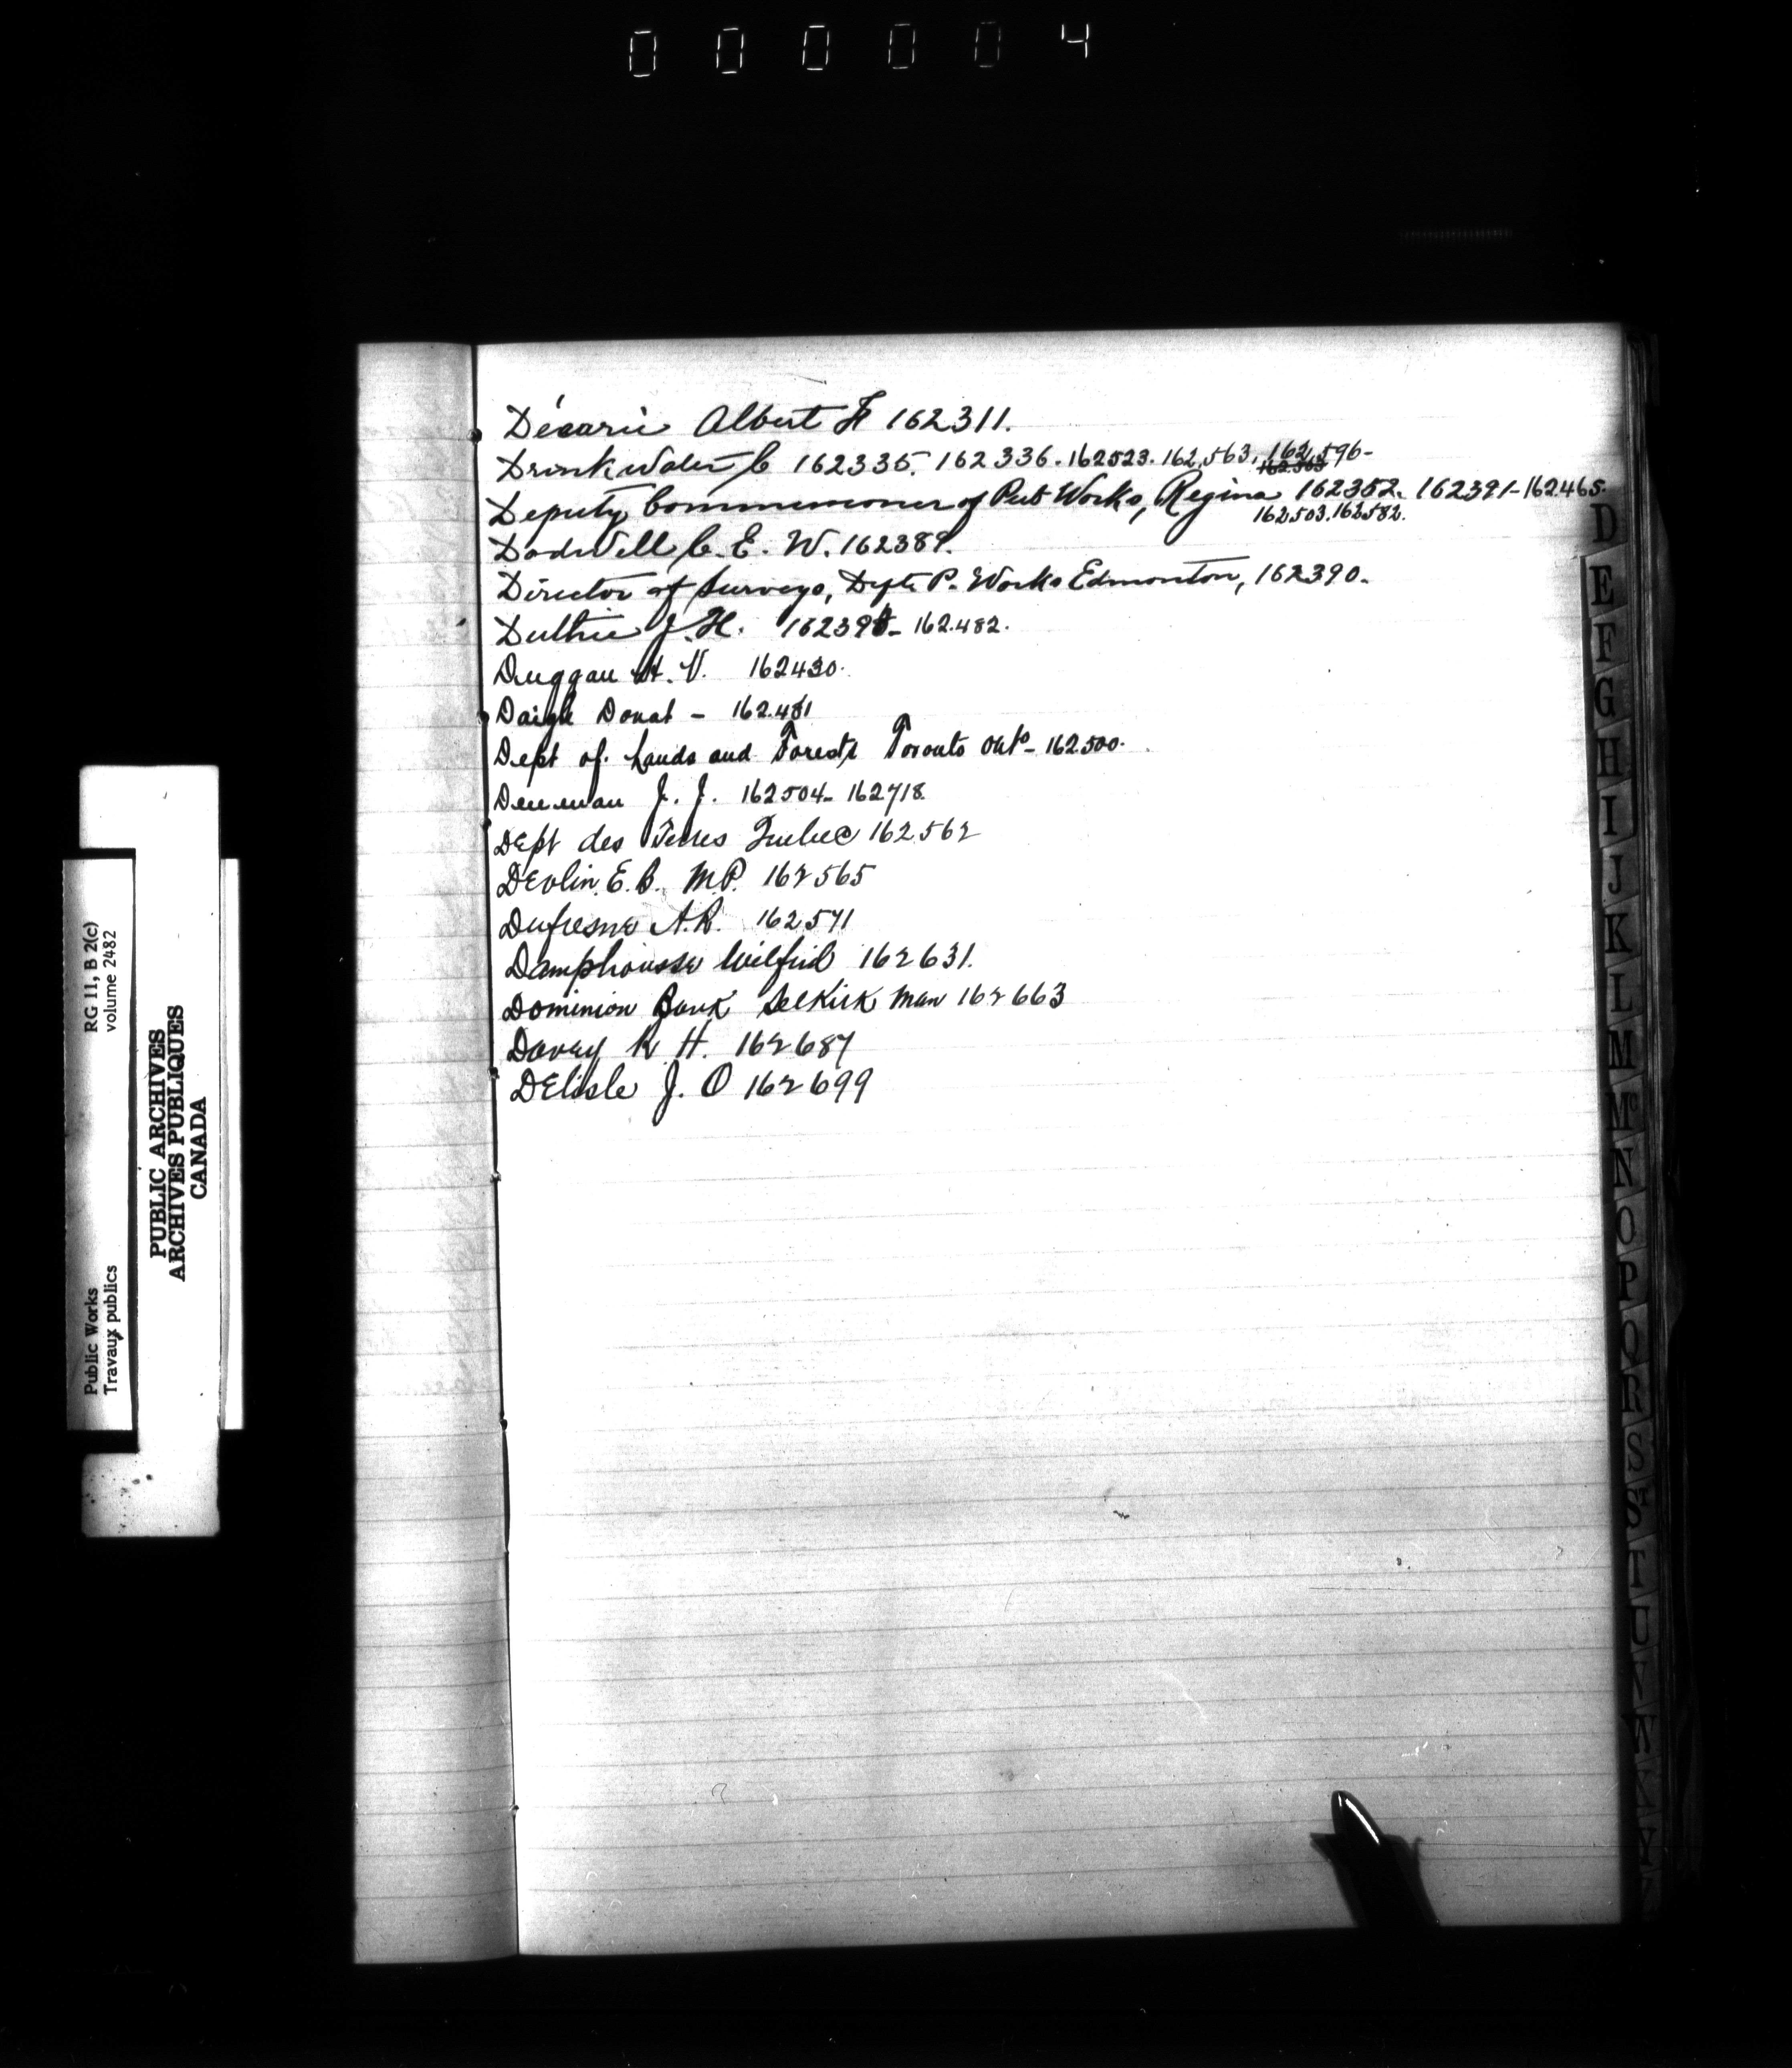 000004
Décarie Albert F 162311.
Drinkwater C 162335. 162336. 162523. 162,563, 162,596-
162563
Deputy Commissioner of Pub Works, Regina 162352. 162391-162.465.
162503. 162582.
Dodwell C. E. W. 162389.
Director of Surveys, Dept P. Works Edmonton, 162390.
Duthie J. H. 162398- 162.482.
Duggan H. V. 162430.
Daigle Donat - 162.481
Dept of Lands and Forests Toronto Ont- 162500.
Denman J. J. 162504- 162718.
Dept des Terres Quebec 162562
Devlin E. B. M.P. 162565
Dufresne A.R. 162571
Damphousse Wilfrid 162631.
Dominion Bank Selkirk Man 162663
Davey R. H. 162687
DElisle J. O 162699
D
E
F
G
H
I
J
K
L
M
Mc
N
O
P
Q
R
S
St
T
U
V
W
Public Works
Travaux publics
RG 11, B 2(c)
volume 2482
PUBLIC ARCHIVES
ARCHIVES PUBLIQUES
CANADA